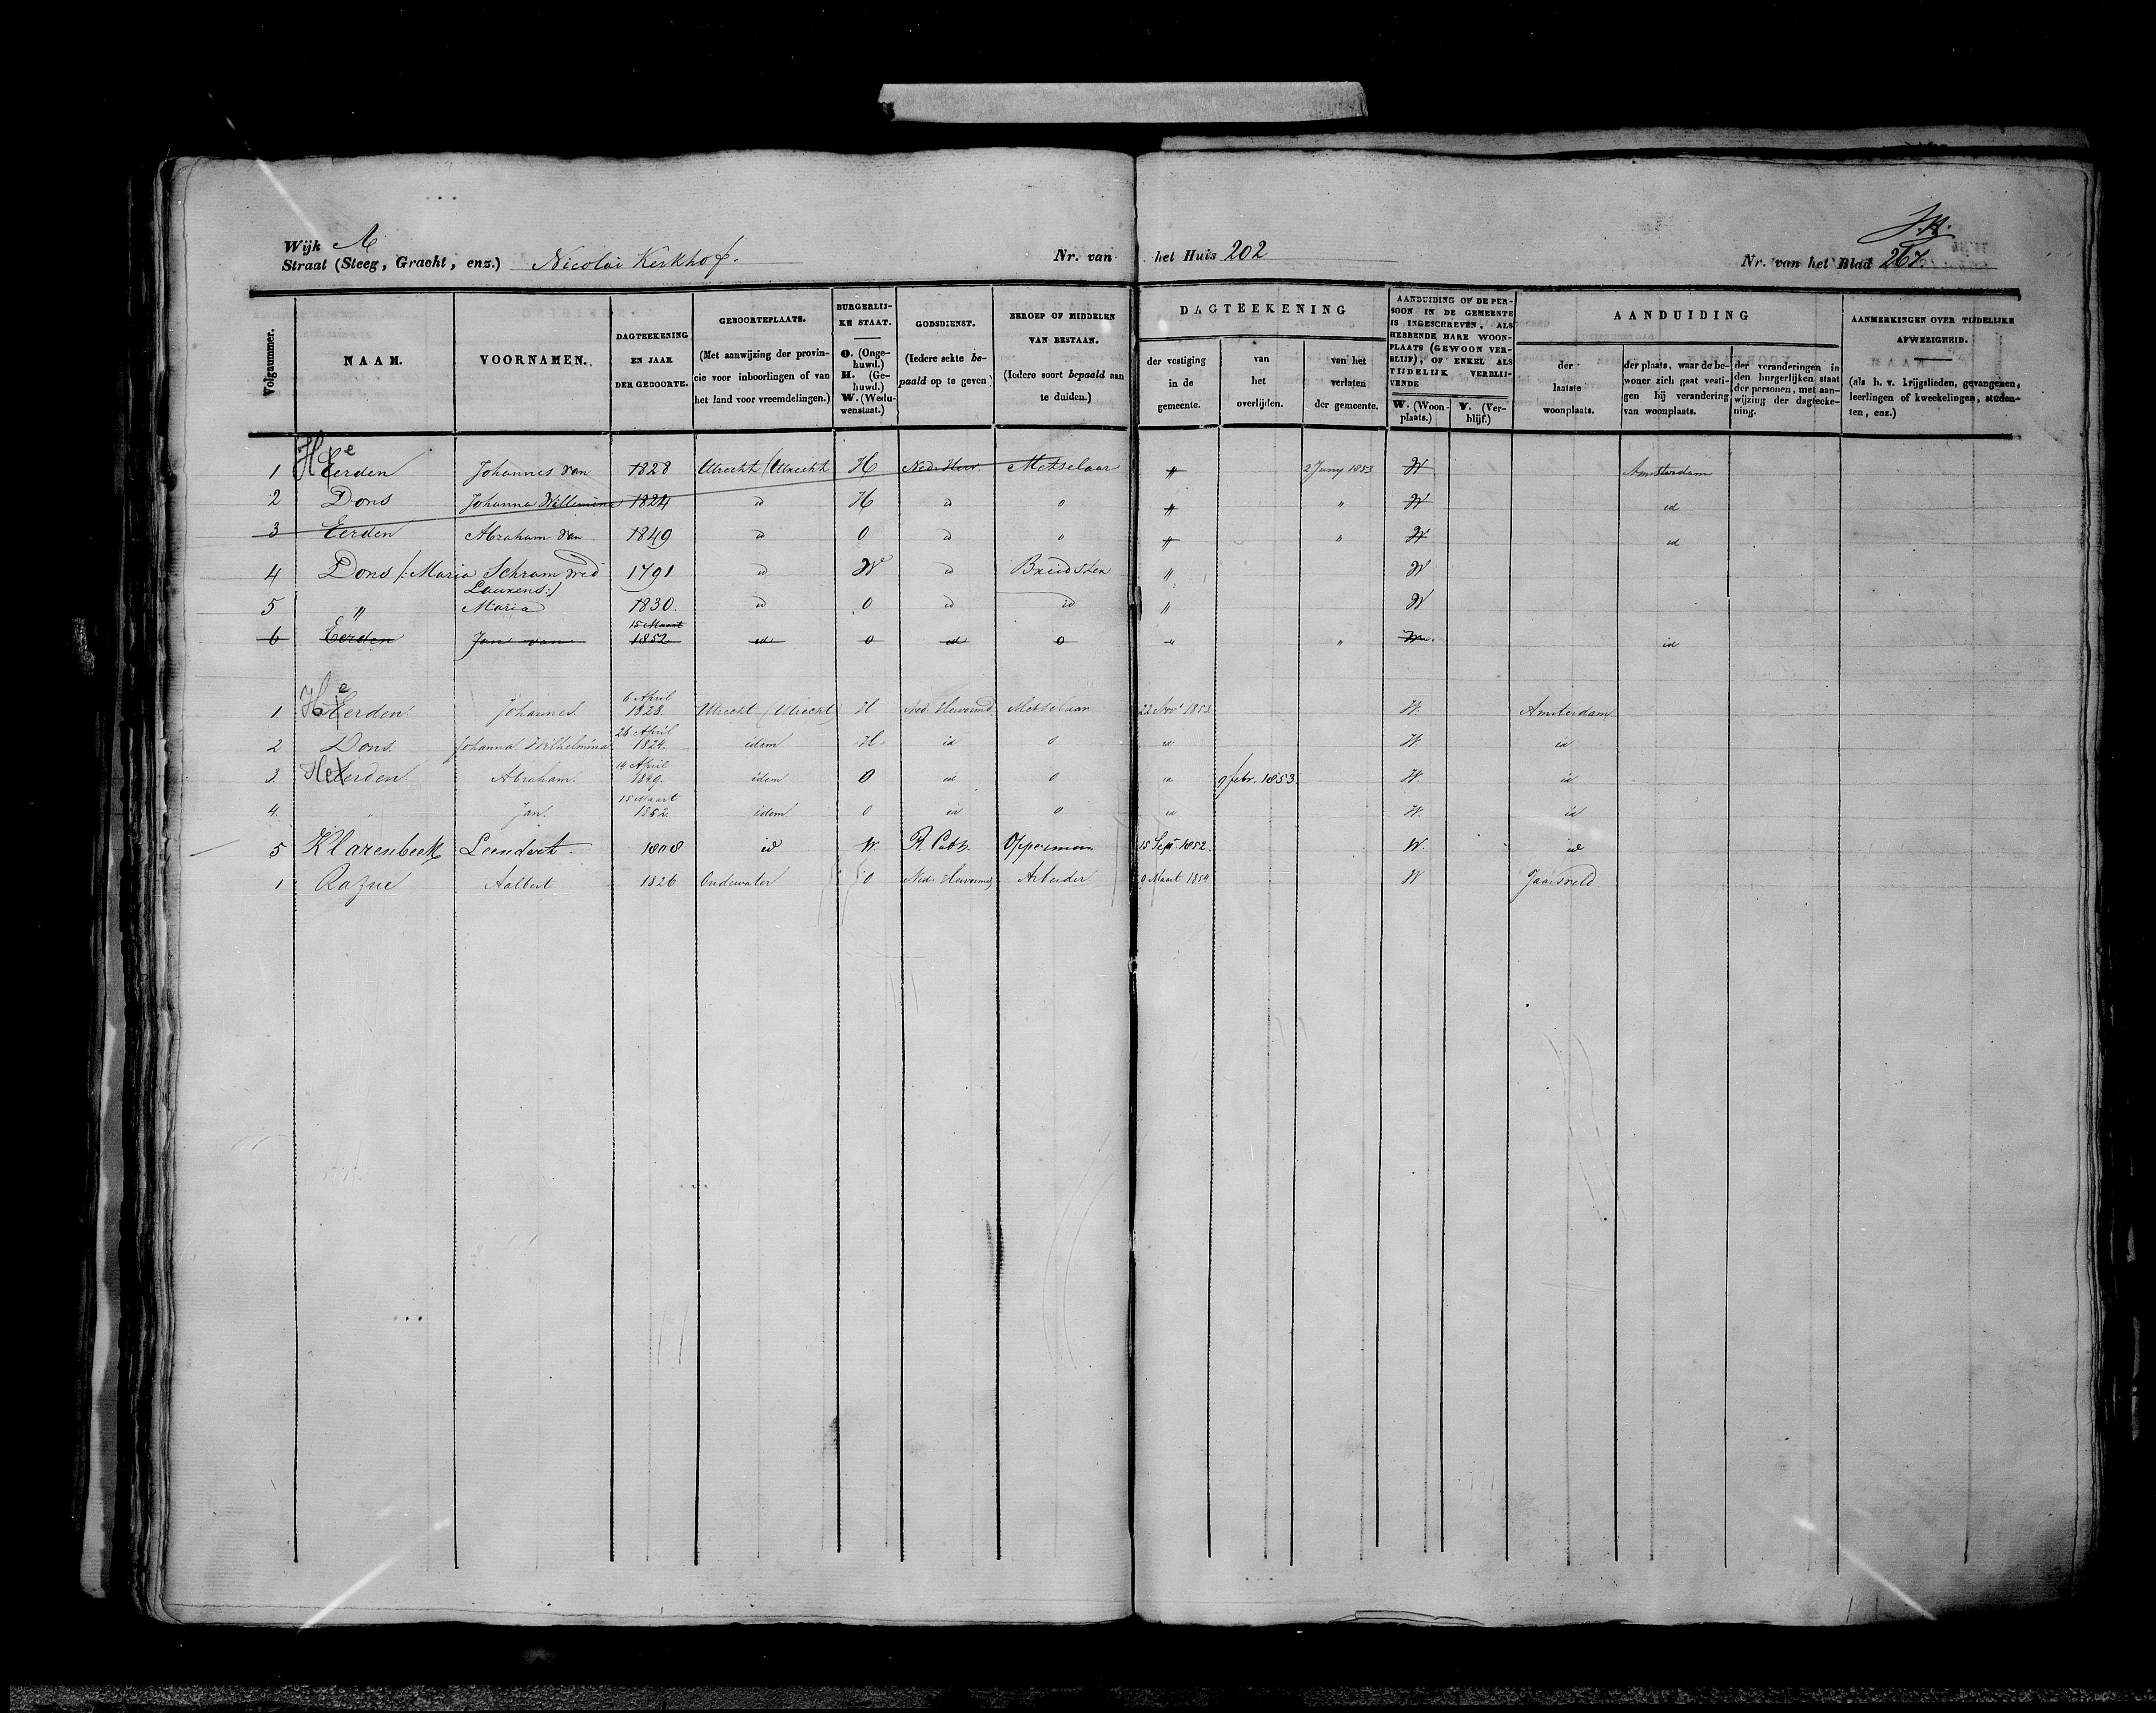 Wijk A
Straat (Steeg, Gracht, enz.) Nicolai Kerkhof. Nr. van het Huis 202 Nr. van het Blad 267.
Volgnummer. NAAM. VOORNAMEN. DAGTEEKENING EN JAAR DER GEBOORTE. GEBOORTEPLAATS. (Met aanwijzing der provincie voor inboorlingen of van het land voor vreemdelingen.) BURGERLIJKE STAAT. O. (Ongehuwd.) H. (Gehuwd.) W. (Weduwenstaat.) GODSDIENST. (Iedere sekte bepaald op te geven) BEROEP OF MIDDELEN VAN BESTAAN. (Iedere soort bepaald aan te duiden.)
DAGTEEKENING der vestiging in de gemeente. van het overlijden. van het verlaten der gemeente. AANDUIDING OF DE PERSOON IN DE GEMEENTE IS INGESCHREVEN, ALS HEBBENDE HARE WOONPLAATS (GEWOON VERBLIJF), OF ENKEL ALS TIJDELIJK VERBLIJVENDE W. (Woonplaats.) V. (Verblijf.) AANDUIDING der laatste woonplaats. der plaats, waar de bewoner zich gaat vestigen bij verandering van woonplaats. der veranderingen in den burgerlijken staat der personen, met aanwijzing der dagteekening. AANMERKINGEN OVER TIJDELIJKE AFWEZIGHEID. (als b. v. krijgslieden, gevangenen, leerlingen of kweekelingen, studenten, enz.)
1 HeEerden Johannes van 1828 Utrecht / Utrecht H Ned. Herv. Metselaar " 2 Juny 1853 W Amsterdam
2 Dons Johanna Willemina 1824 id H id 0 " " W id
3 Eerden Abraham van 1849 id 0 id 0 " " W id
4 Dons /: Maria Schram wed Laurens :/ 1791 id W id Breidster " W
5 " Maria 1830. id 0 id id " W
6 Eerden Jan van 15 Maart 1852 id 0 id 0 " " W. id
1. HeEerden Johannes. 6 April 1828. Utrecht / Utrecht H Ned. Hervormd Metselaar 22 Nov 1853 W. Amsterdam
2 Dons. Johanna Wilhelmina 26 April 1824. idem H. id 0 id W id
3. HeEerden Abraham. 14 April 1849. idem 0 id 0 id 9 febr. 1853 W. id
4. " Jan. 15 Maart 1852. idem 0 id 0 id W. id
5 Klarenbeek Leendert 1808 id W R. Cath. Opperman 15 Sept 1852. W. id
1 Razue Aalbert 1826 Oudewater 0 Ned. Hervormd Arbeider 9 Maart 1854 W Jaarsveld